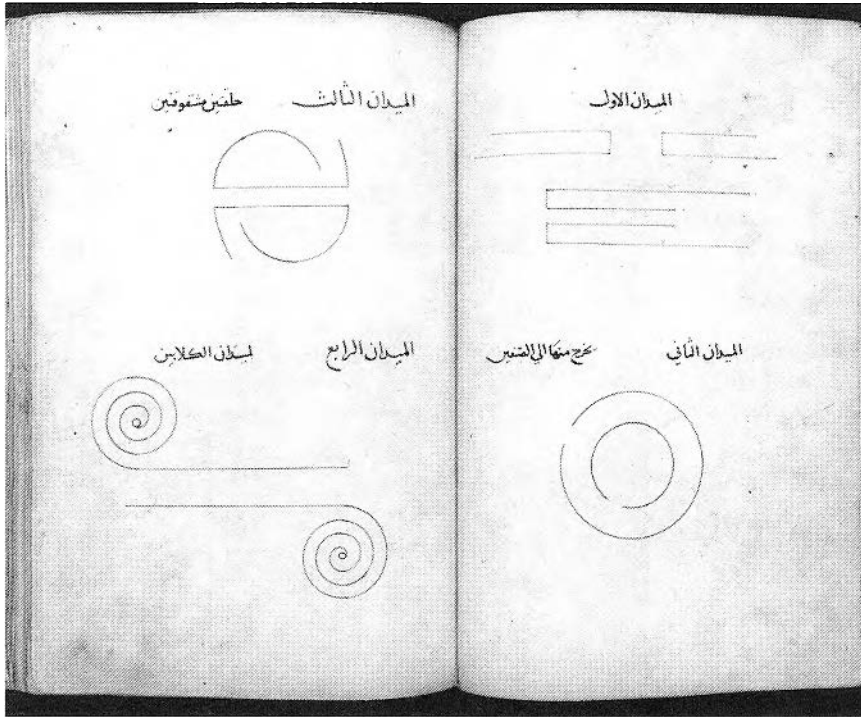 الميدان الاول
الميدان الثاني يخرج منها الي
الميدان الثالث حلقتين مشقوقتين
الميدان الرابع لميدان الكلابين